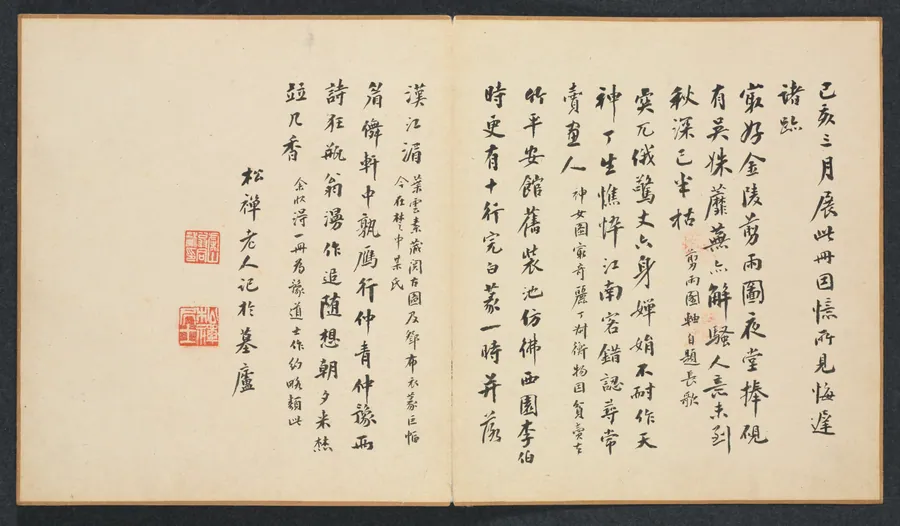 己亥三月展此冊因憶所見悔遲
諸跡
最好金陵剪雨圖夜堂捧硯
有吳姝蘼蕪亦解騷人意未到
秋深已半枯 剪雨圖軸自題長歌
突兀俄驚丈六身嬋娟不耐作天
神丁生憔悴江南客錯認尋常
賣畫人 神女圖最奇麗丁對衡物因貧賣去
竹平安館舊裝池仿佛西園李伯
時更有十行完白篆一時并落
漢江湄 葉雲素藏閱古圖及鄧布衣篆巨幅
今在楚中某氏
眉軒中孰雁行仲青仲豫兩
詩狂瓶翁漫作追隨想朝夕米
並几香 余得一冊為豫道士作約略類此
松禪老人記於墓廬
松禪居士